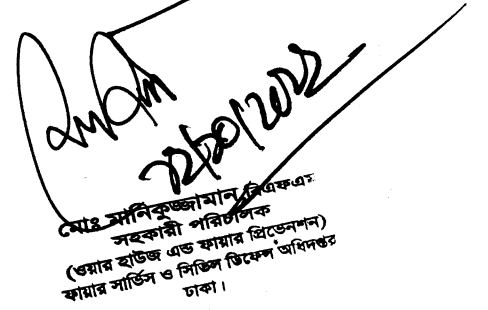 ১২/১০/২০২২
মোঃ মানিকুজ্জামান বিএফএম
সহকারী পরিচালক
(ওয়ার হাউজ এন্ড ফায়ার প্রিভেনশন)
ফায়ার সার্ভিস ও সিভিল ডিফেন্স অধিদপ্তর
ঢাকা।